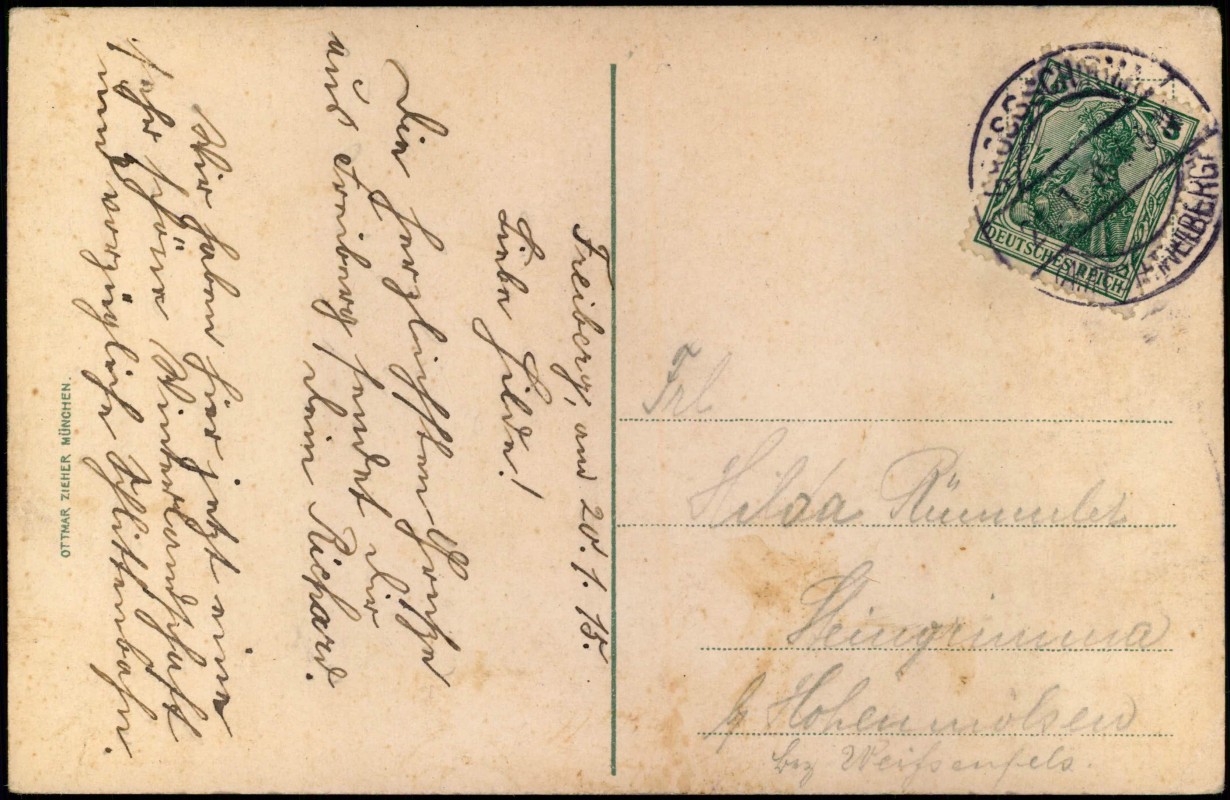 Freiberg, am 20.1.15.
Liebe Hilde!
Die herzlichsten Grüße
aus Freiberg sendet Dir
dein Richard.
Wir haben hier jetzt eine
sehr schöne Winterlandschaft
und vorzügliche Schlittenbahn.
OTTMAR ZIEHER MÜNCHEN.
5
DEUTSCHES REICH
Frl
Hilda
Steingrimma
b/ Hohenmölsen
bez Weißenfels.